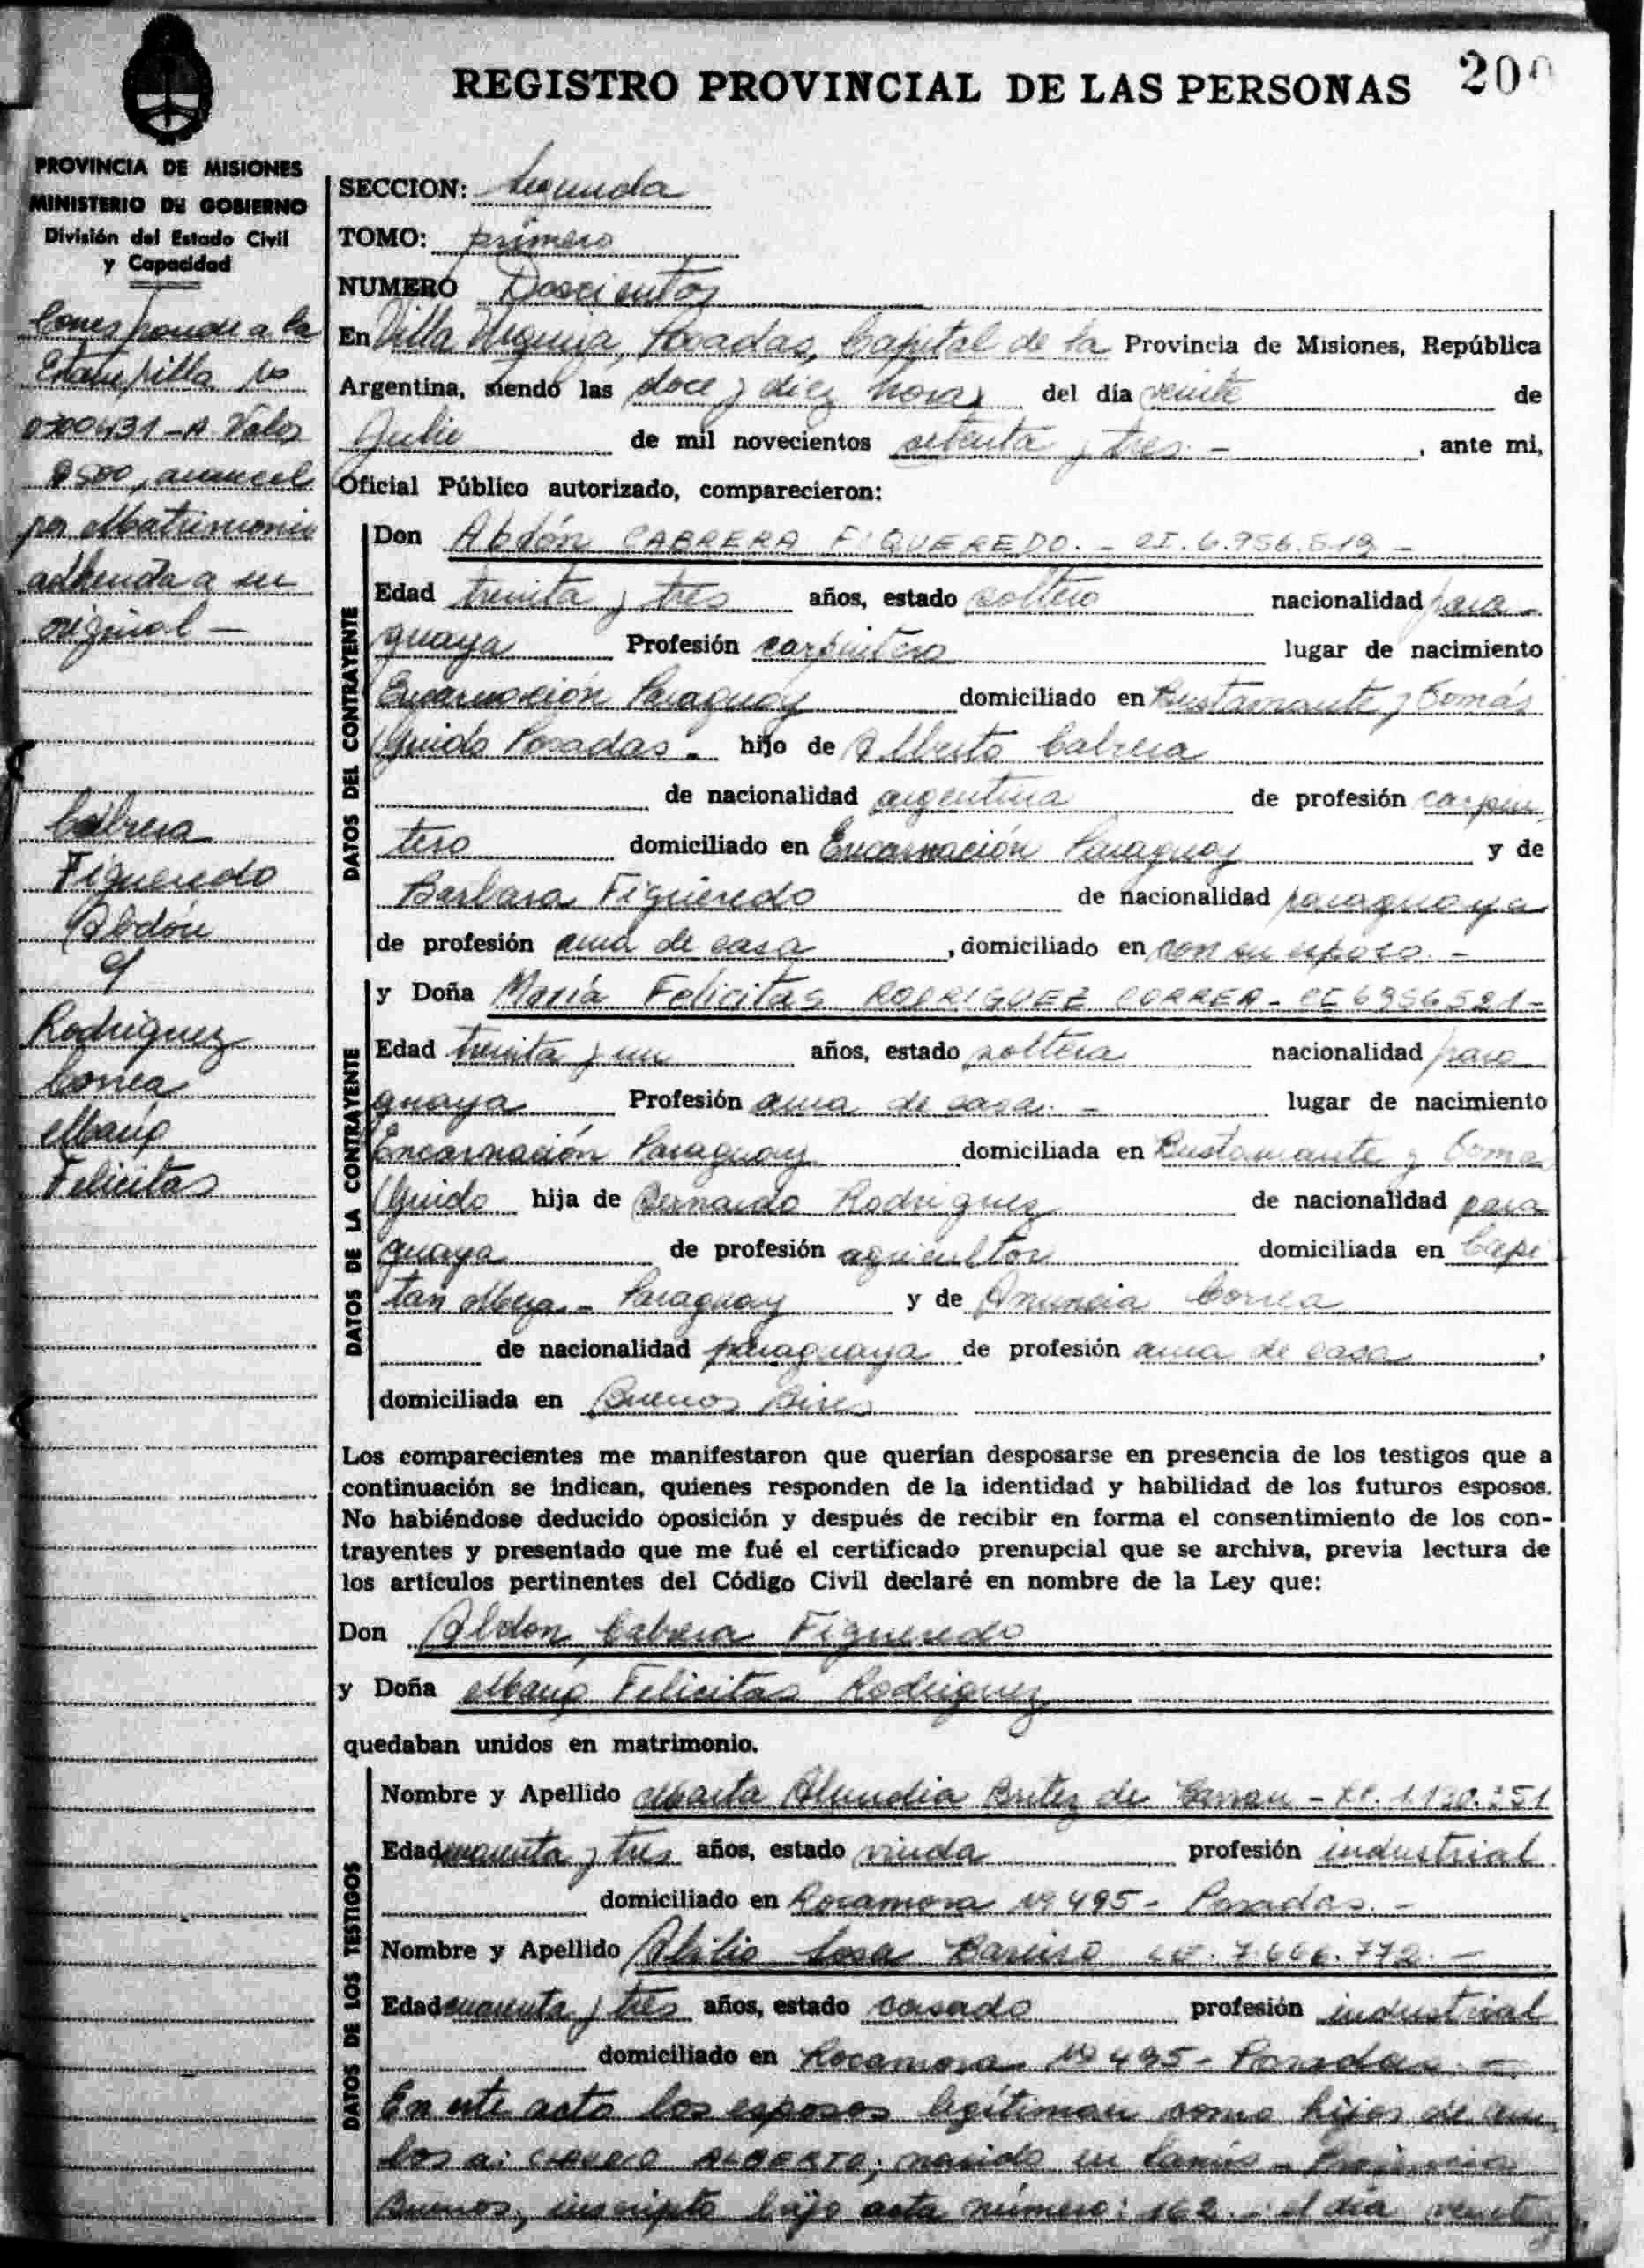 REGISTRO PROVINCIAL DE LAS PERSONAS 200
PROVINCIA DE MISIONES
MINISTERIO DE GOBIERNO
División del Estado Civil
y Capacidad
Corresponde a la
Estampilla No
0700431-A Valor
$500, arancel
por Matrimonio
adherida a su
original -
Cabrera
Figueredo
Abdón
y
Rodriguez
Correa
María
Felicitas
SECCION: Segunda
TOMO: primero
NUMERO Doscientos
En Villa Urquiza, Posadas, Capital de la Provincia de Misiones, República
Argentina, siendo las doce y diez horas del día veinte de
Julio de mil novecientos setenta y tres. - , ante mi,
Oficial Público autorizado, comparecieron:
DATOS DEL CONTRAYENTE
Don Abdón CABRERA FIGUEREDO. - CI. 6.956.519 -
Edad treinta y tres años, estado soltero nacionalidad para-
guaya Profesión carpintero lugar de nacimiento
Encarnación Paraguay domiciliado en Bustamante y Tomás
Guido Posadas - hijo de Alberto Cabrera
de nacionalidad argentina de profesión carpin
tero domiciliado en Encarnación Paraguay y de
Barbara Figueredo de nacionalidad paraguaya
de profesión ama de casa , domiciliado en con su esposo. -
DATOS DE LA CONTRAYENTE
y Doña María Felicitas RODRIGUEZ CORREA - CI 6956521 -
Edad treinta y un años, estado soltera nacionalidad para
guaya Profesión ama de casa. - lugar de nacimiento
Encarnación Paraguay domiciliada en Bustamante y Tomás
Guido hija de Bernardo Rodriguez de nacionalidad para
guaya de profesión agricultor domiciliada en Capi
tan Meza - Paraguay y de Anuncia Correa
de nacionalidad paraguaya de profesión ama de casa ,
domiciliada en Buenos Aires
Los comparecientes me manifestaron que querían desposarse en presencia de los testigos que a
continuación se indican, quienes responden de la identidad y habilidad de los futuros esposos.
No habiéndose deducido oposición y después de recibir en forma el consentimiento de los con-
trayentes y presentado que me fué el certificado prenupcial que se archiva, previa lectura de
los artículos pertinentes del Código Civil declaré en nombre de la Ley que:
Don Abdon Cabrera Figueredo
y Doña María Felicitas Rodriguez
quedaban unidos en matrimonio.
DATOS DE LOS TESTIGOS
Nombre y Apellido Marta Britez de - 1.120.251
Edad cuarenta y tres años, estado viuda profesión industrial
domiciliado en Rocamora Nº 495 - Posadas. -
Nombre y Apellido Abilio Sosa 7.606.772. -
Edad cuarenta y tres años, estado casado profesión industrial
domiciliado en Rocamora Nº 495 - Posadas. -
En este acto los esposos legitiman como hijos de am
bos a: ALBERTO; nacido en Lanús - Provincia
Buenos, inscripto bajo acta número: 162 - el día